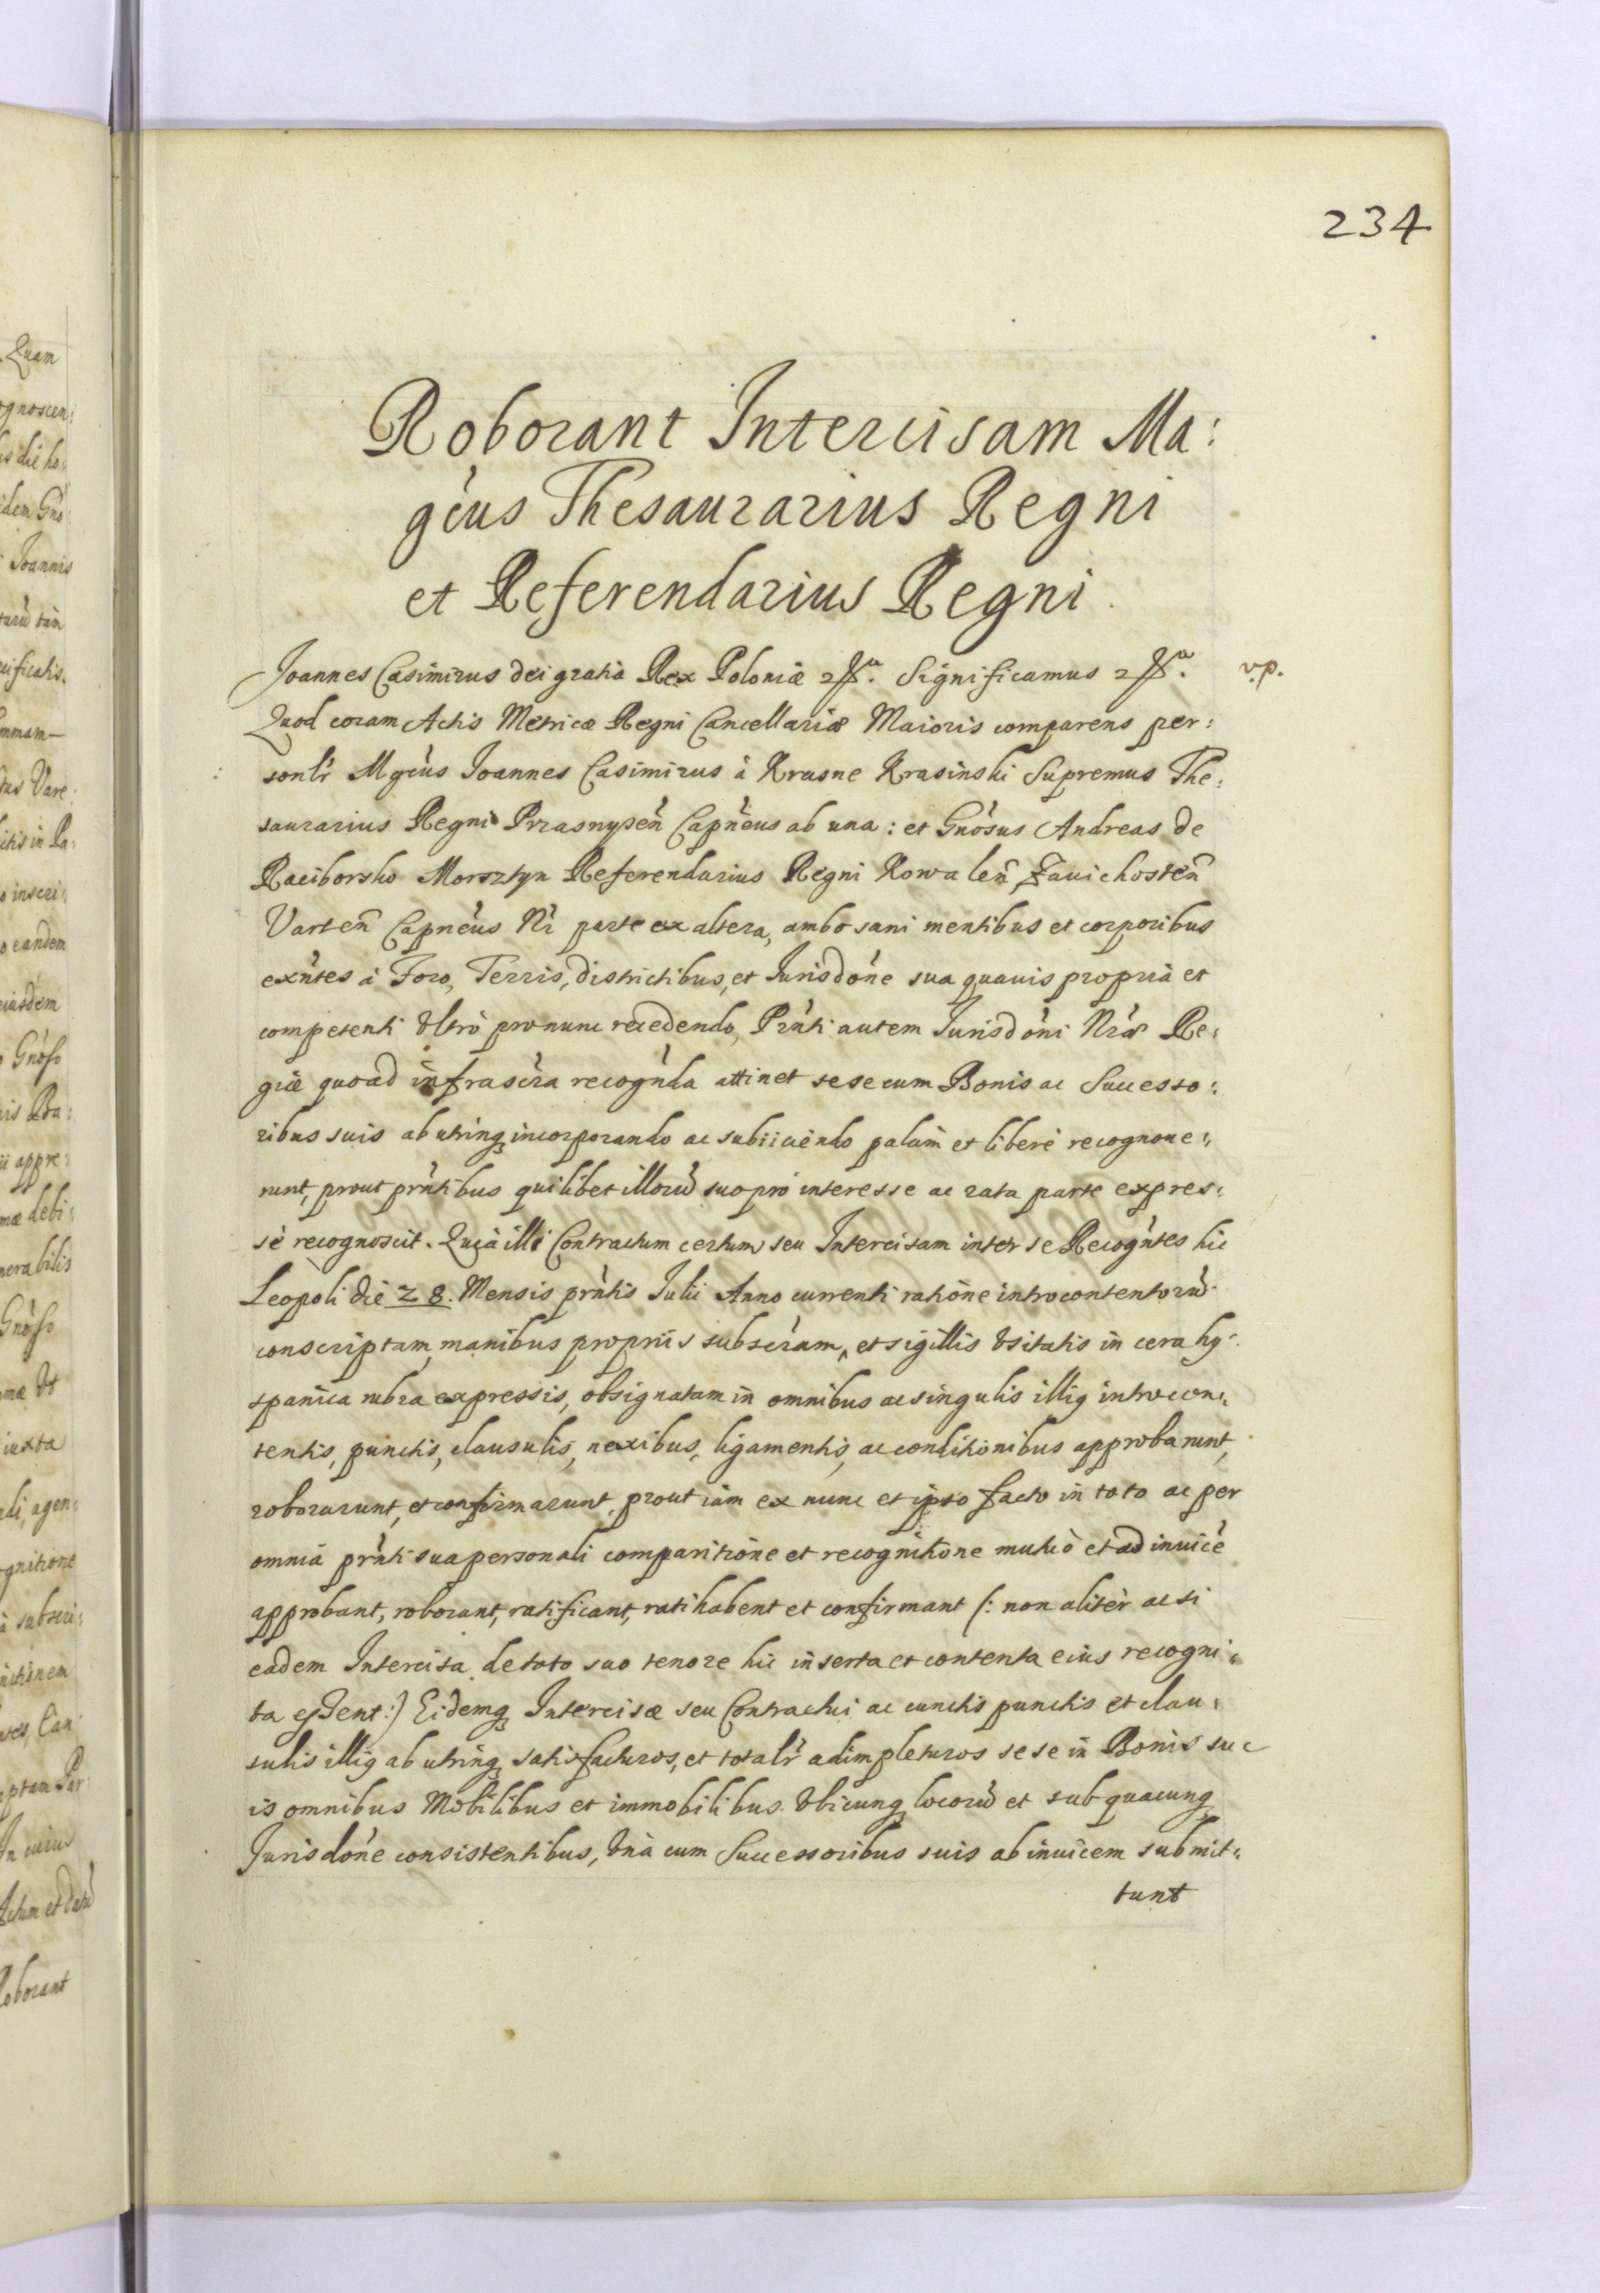 234
Roborant Intercisam Ma:
gcus Thesaurarius Regni
et Referendarius Regni
Joannes Casimirus dei gratia Rex Poloniæ &a. Significamus &a. v.p.
Quod coram Actis Metricæ Regni Cancellariæ Maioris comparens per:
sonlr Mgcus Joannes Casimirus à Krasne Krasinski Supremus The:
saurarius Regni Przasnysen Capneus ab una: et Gnosus Andreas de
Raciborsko Morsztyn Referendarius Regni Kowalen Zavichosten
Varten Capneus Nr parte ex altera, ambo sani mentibus et corporibus
exntes à Foro, Terris, districtibus, et Jurisdone sua quavis propria et
competenti Vltrò pro nunc recedendo, Prnti autem Jurisdoni Nræ Re:
giæ quoad infrascra recognda attinet sese cum Bonis ac Successo:
ribus suis ab utrinq incorporando ac subiiciendo palam et liberè recognove:
runt, prout prntibus quilibet illorũ suo pro interesse ac rata parte expres:
sè recognoscit. Quia illi Contractum certum seu Intercisam inter se Recogntes hic
Leopoli die 28. Mensis prntis Julii Anno currenti ratione introcontentorũ
conscriptam, manibus propriis subscram, et sigillis Vsitatis in cera hy:
spanica rubra expressis, obsignatam in omnibus ac singulis illig introcon:
tentis, punctis, clausulis, nexibus, ligamentis, ac conditionibus approbarunt,
roborarunt, et confirmarunt, prout iam ex nunc et ipso facto in toto ac per
omnia prnti sua personali comparitione et recognitione mutuò et ad invicẽ
approbant, roborant, ratificant, ratihabent et confirmant (: non alitèr ac si
eadem Intercisa de toto suo tenore hic inserta et contenta eius recogni:
ta essent:) Eidemq Intercisæ seu Contractui ac cunctis punctis et clau:
sulis illig ab utrinq satisfacturos, et totalr adimpleturos sese in Bonis su:
is omnibus Mobilibus et immobilibus Vbicunq locorũ et sub quacunq
Jurisdone consistentibus, Vnà cum Successoribus suis ab invicem submit:
tunt